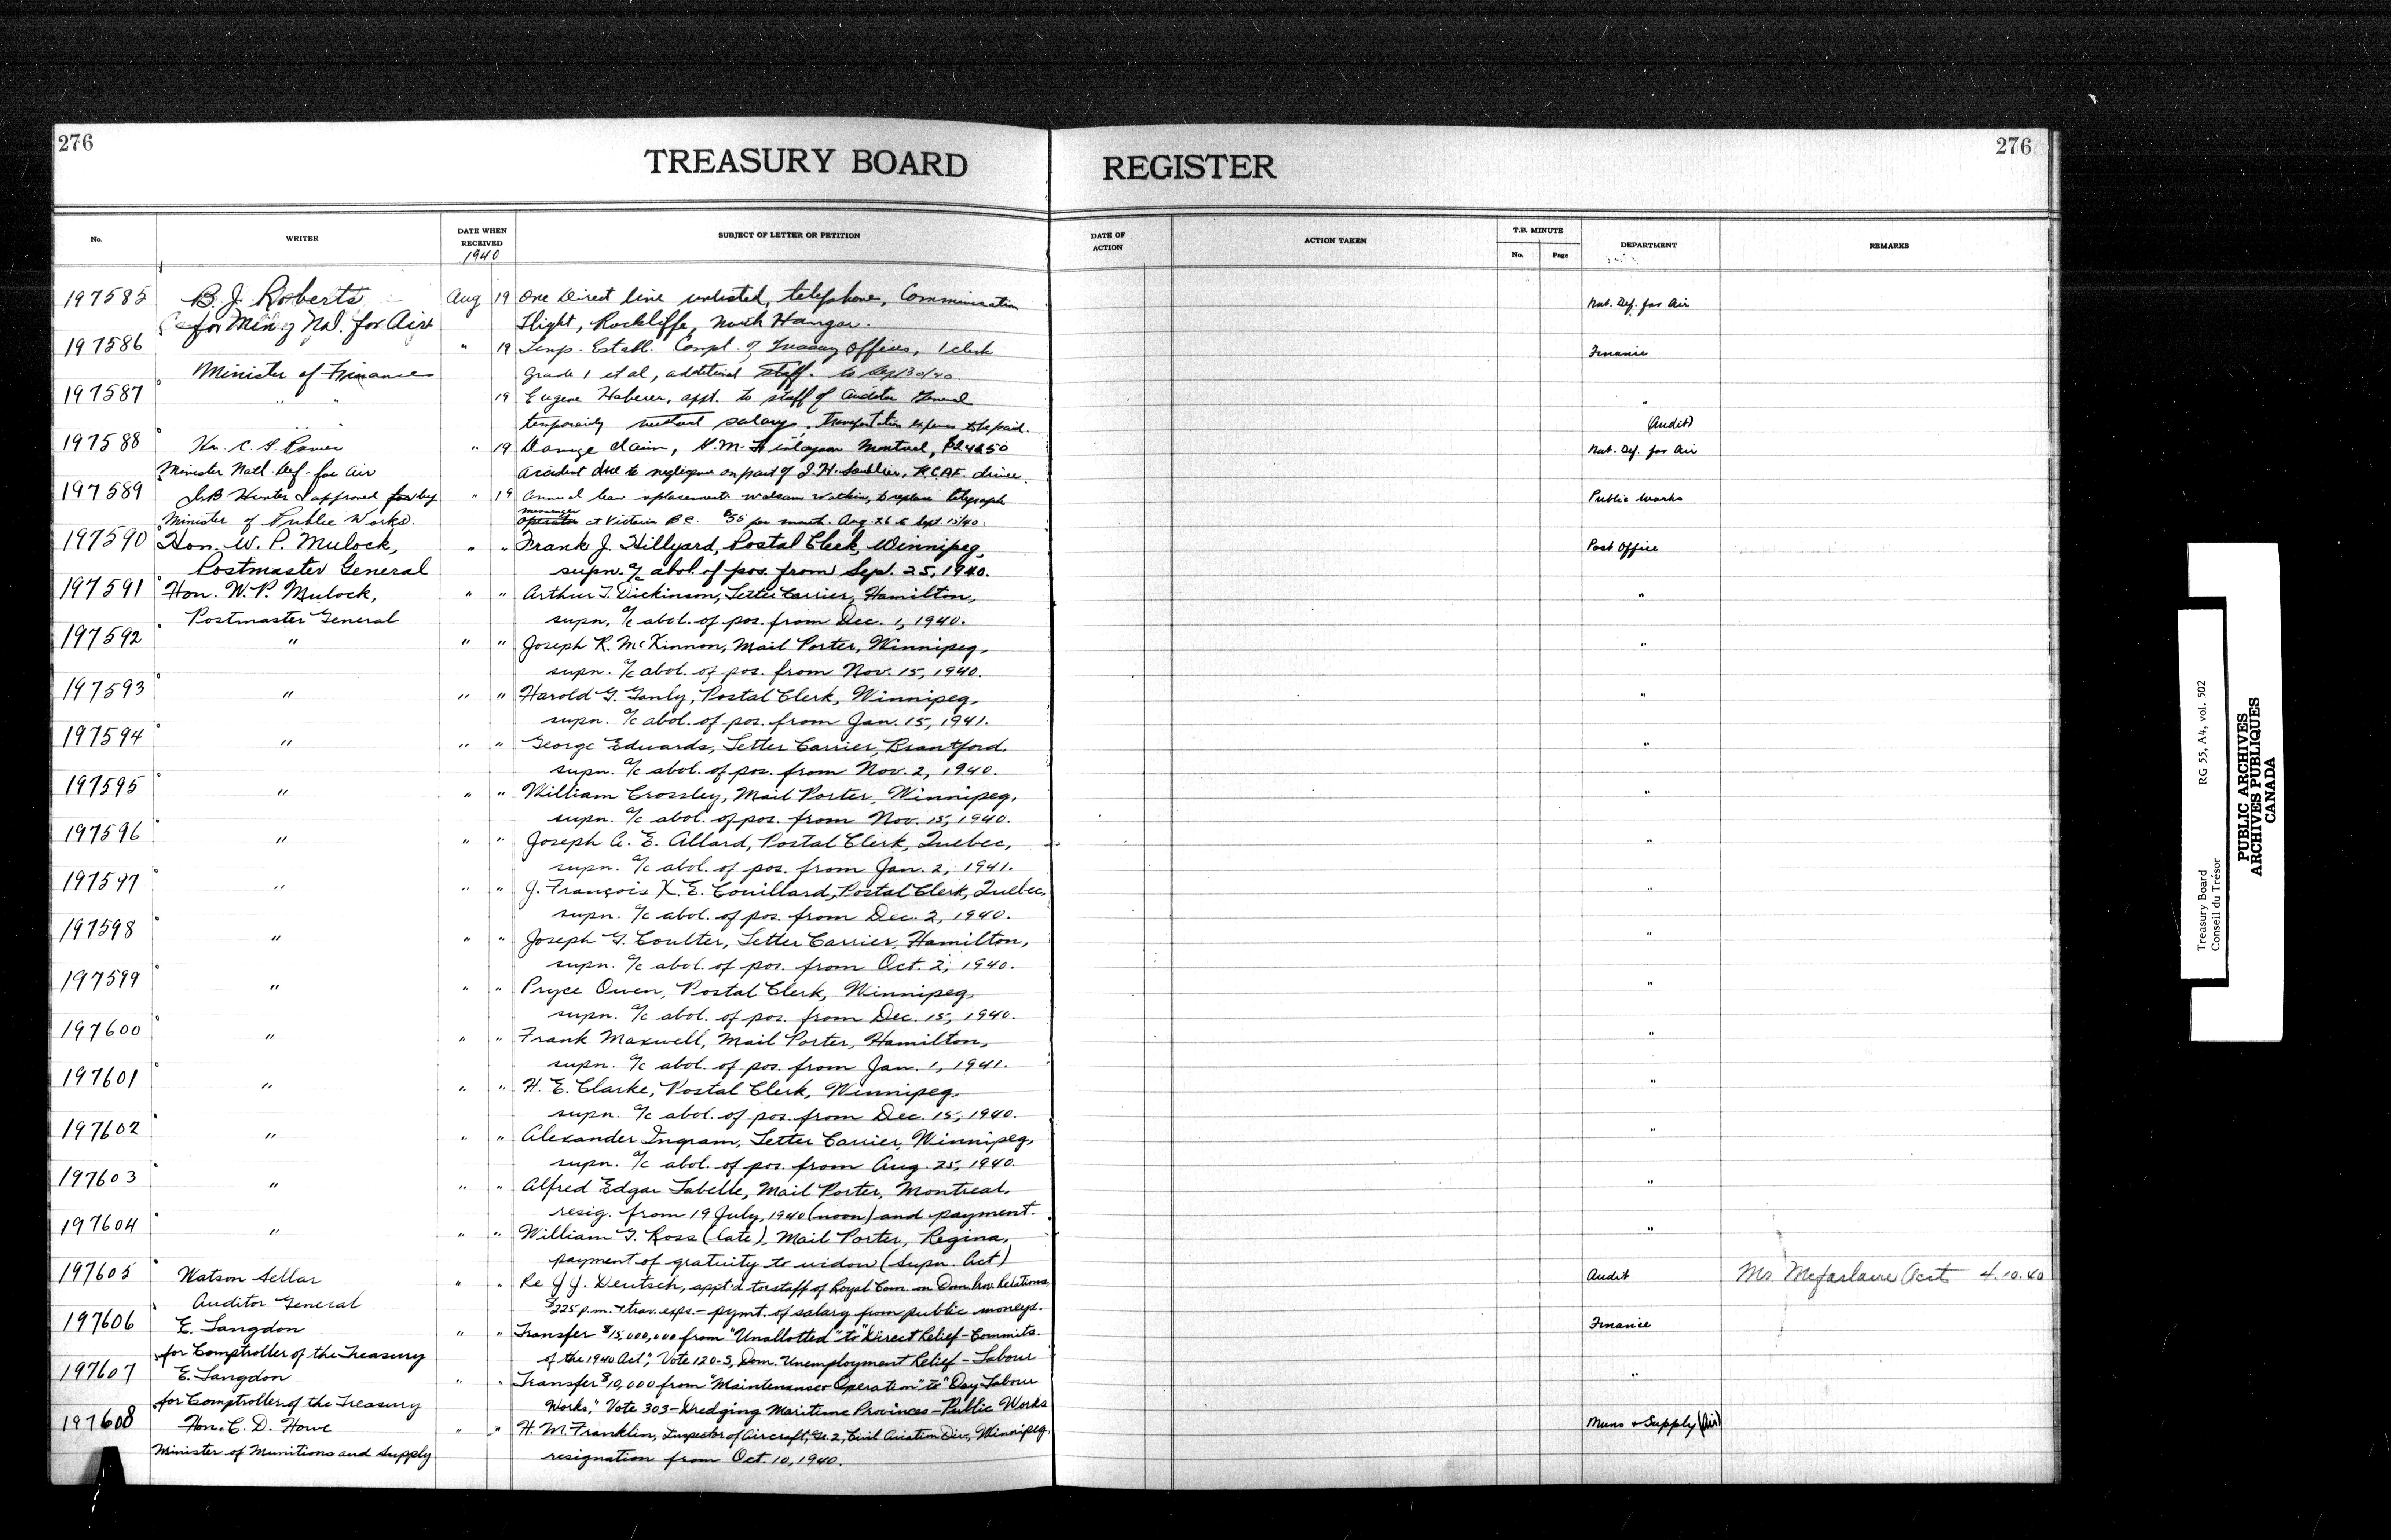 276
276
TREASURY BOARD REGISTER
No. WRITER DATE WHEN RECEIVED 1940 SUBJECT OF LETTER OR PETITION DATE OF ACTION ACTION TAKEN T.B. MINUTE No. Page DEPARTMENT REMARKS
197585 B. J. Roberts Aug 19 One Direct line unlisted, telephone, Communication Nat. Def. for Air
for Min of Nat. for Air Flight, Rockliffe, North Hangar.
197586 " 19 Temp. Establ. Compl. of Treasury Offices, 1 clerk Finance
Minister of Finance Grade 1 et al, additional staff. to Sep/30/40
197587 " " 19 Eugene Haberer, appt. to staff of Auditor General "
temporarily without salary. Transportation expenses to be paid. (Audit)
197588 Hon. C. G. Power " 19 Damage claim, G. M. Finlayson Montreal, $242.50 Nat. Def. for Air
Minister Natl. Def. for Air accident due to negligence on part of J. H. R.C.A.F. driver.
197589 J.B Hunter & approved for by " 19 Annual leave replacement Watkin, to replace telegraph Public Works
Minister of Public Works. messenger operator at Victoria B.C. $55 per month. Aug. 26 to Sept. 15/40.
197590 Hon. W. P. Mulock, " " Frank J. Hillyard, Postal Clerk, Winnipeg, Post Office
Postmaster General supn. a/c abol. of pos. from Sep. 25, 1940.
197591 Hon. W. P. Mulock, " " Arthur T. Dickinson, Letter Carrier, Hamilton, "
Postmaster General supn. a/c abol. of pos. from Dec. 1, 1940.
197592 " " " Joseph R. McKinnon, Mail Porter, Winnipeg, "
supn. a/c abol. of pos. from Nov. 15, 1940.
197593 " " " Harold G. Ganly, Postal Clerk, Winnipeg, "
supn. a/c abol. of pos. from Jan. 15, 1941.
197594 " " " George Edwards, Letter Carrier, Brantford, "
supn. a/c abol. of pos. from Nov. 2, 1940.
197595 " " " William Crossley, Mail Porter, Winnipeg, "
supn. a/c abol. of pos. from Nov. 15, 1940.
197596 " " " Joseph A. E. Allard, Postal Clerk, Quebec, "
supn. a/c abol. of pos. from Jan. 2, 1941.
197597 " " " J. François X. E. Couillard, Postal Clerk, Quebec, "
supn. a/c abol. of pos. from Dec. 2, 1940.
197598 " " " Joseph G. Coulter, Letter Carrier, Hamilton, "
supn. a/c abol. of pos. from Oct. 2, 1940.
197599 " " " Pryce Owen, Postal Clerk, Winnipeg, "
supn. a/c abol. of pos. from Dec. 15, 1940.
197600 " " " Frank Maxwell, Mail Porter, Hamilton, "
supn. a/c abol. of pos. from Jan. 1, 1941.
197601 " " " H. E. Clarke, Postal Clerk, Winnipeg, "
supn. a/c abol. of pos. from Dec. 15, 1940.
197602 " " " Alexander Ingram, Letter Carrier, Winnipeg, "
supn. a/c abol. of pos. from Aug. 25, 1940.
197603 " " " Alfred Edgar Labelle, Mail Porter, Montreal, "
resig. from 19 July, 1940 (noon) and payment.
197604 " " " William G. Ross (late), Mail Porter, Regina, "
payment of gratuity to widow (Supn. Act)
197605 Watson Sellar " " Re J. J. Deutsch, appt'd to staff of Royal Com. on Dom. Prov. Relations Audit Mr Mcfarlane Acct 4.10.40
Auditor General $225 p.m. & trav. exps. - pymt. of salary from public moneys.
197606 E. Langdon " " Transfer $15,000,000 from "Unallotted" to "Direct Relief - Commits. Finance
for Comptroller of the Treasury of the 1940 Act", Vote 120-S, Dom. Unemployment Relief - Labour
197607 E. Langdon " " Transfer $10,000 from "Maintenance & Operation" to "Day Labour "
for Comptroller of the Treasury Works," Vote 303 - Dredging Maritime Provinces - Public Works
197608 Hon. C. D. Howe " " H. M. Franklin, Inspector of Aircraft, Gr. 2, Civil Aviation Div., Winnipeg, Muns & Supply (Air)
Minister of Munitions and Supply resignation from Oct. 10, 1940.
Treasury Board RG 55, A4, vol. 502
Conseil du Trésor
PUBLIC ARCHIVES
ARCHIVES PUBLIQUES
CANADA